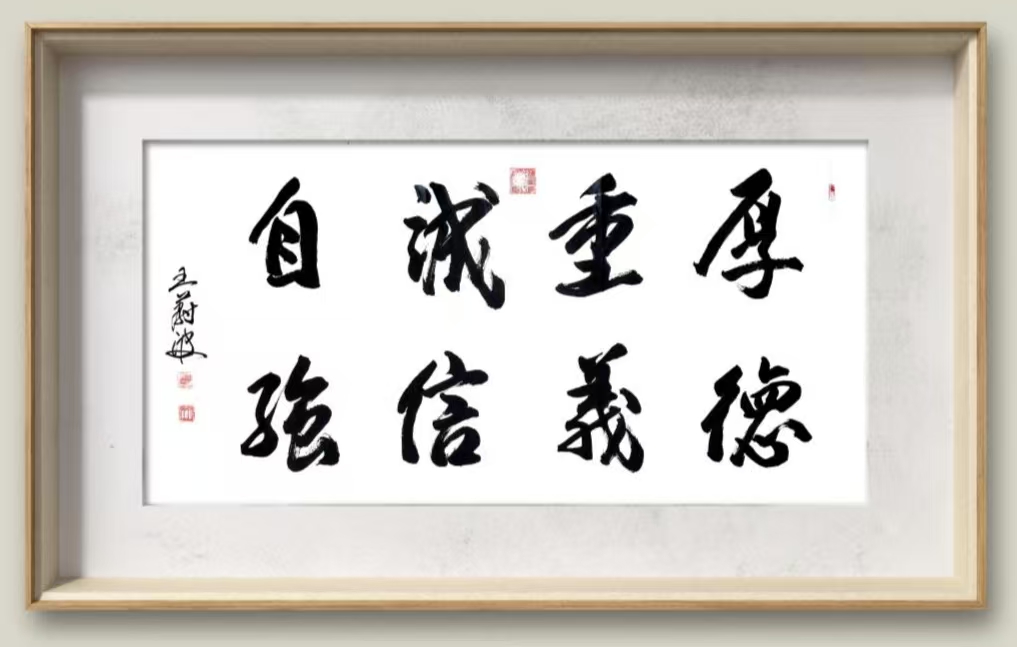 厚德
重義
誠信
自強
王蔚波